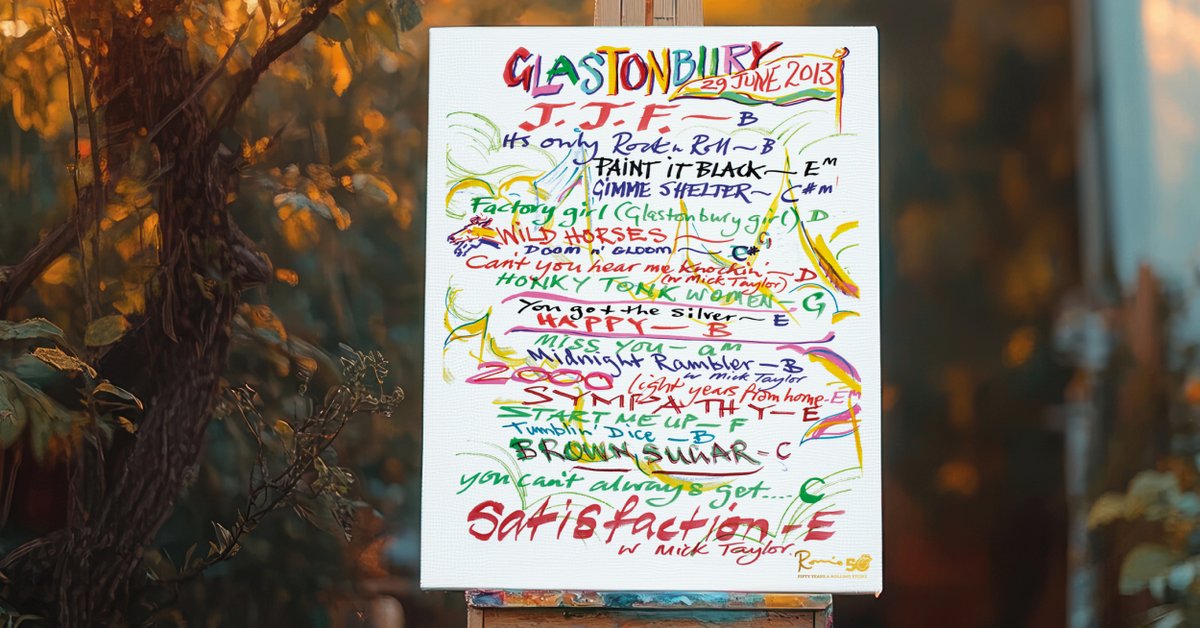 GLASTONBURY
29 JUNE 2013
J.J.F. — B
Its only Rock n Roll ~ B
PAINT iT BLACK ~ Em
GIMME SHELTER ~ C#m
Factory girl (Glastonbury girl). D
WILD HORSES — G
DOOM n' GLOOM — C#
Can't you hear me Knockin' ~ D
(w Mick Taylor)
HONKY TONK WOMEN - G
You got the silver ~ E
HAPPY — B
MISS YOU - am
Midnight Rambler - B
w Mick Taylor
2000 light years from home - E
SYMPATHY — E
START ME UP - F
Tumblin' Dice — B
BROWN SUGAR - C
you can't always get.... C
Satisfaction - E
w Mick Taylor.
Ronnie 50
FIFTY YEARS A ROLLING STONE